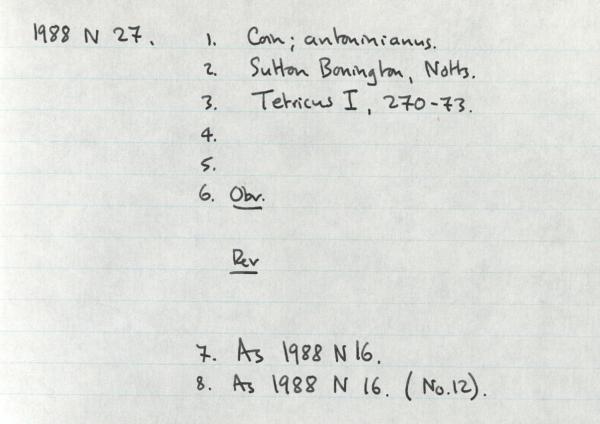 1988 N 27. 1. Coin; antoninianus.
2. Sutton Bonington, Notts.
3. Tetricus I, 270-73.
4.
5.
6. Obv.
Rev
7. As 1988 N 16.
8. As 1988 N 16. (No.12).